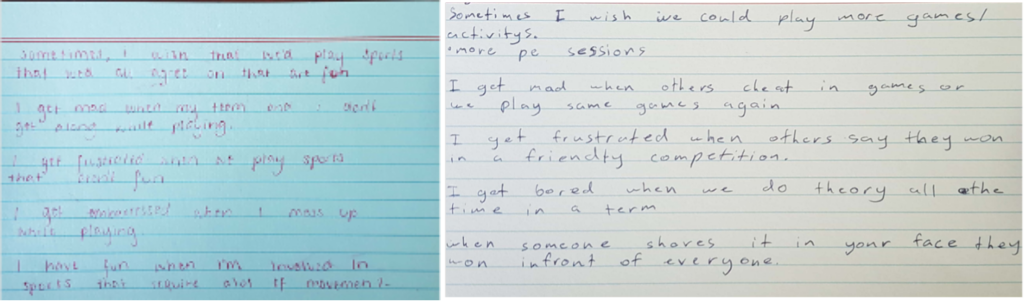 sometimes, I wish that we'd play sports
that we'd all agree on that are fun
I get mad when my team and I don't
get along while playing.
I get frustrated when we play sports
that aren't fun
I get embarrassed when I mess up
while playing
I have fun when I'm involved in
sports that require alot of movement
Sometimes I wish we could play more games/
activitys.
more pe sessions
I get mad when others cheat in games or
we play same games again
I get frustrated when others say they won
in a friendly competition.
I get bored when we do theory all the
time in a term
when someone shoves it in your face they
won infront of everyone.